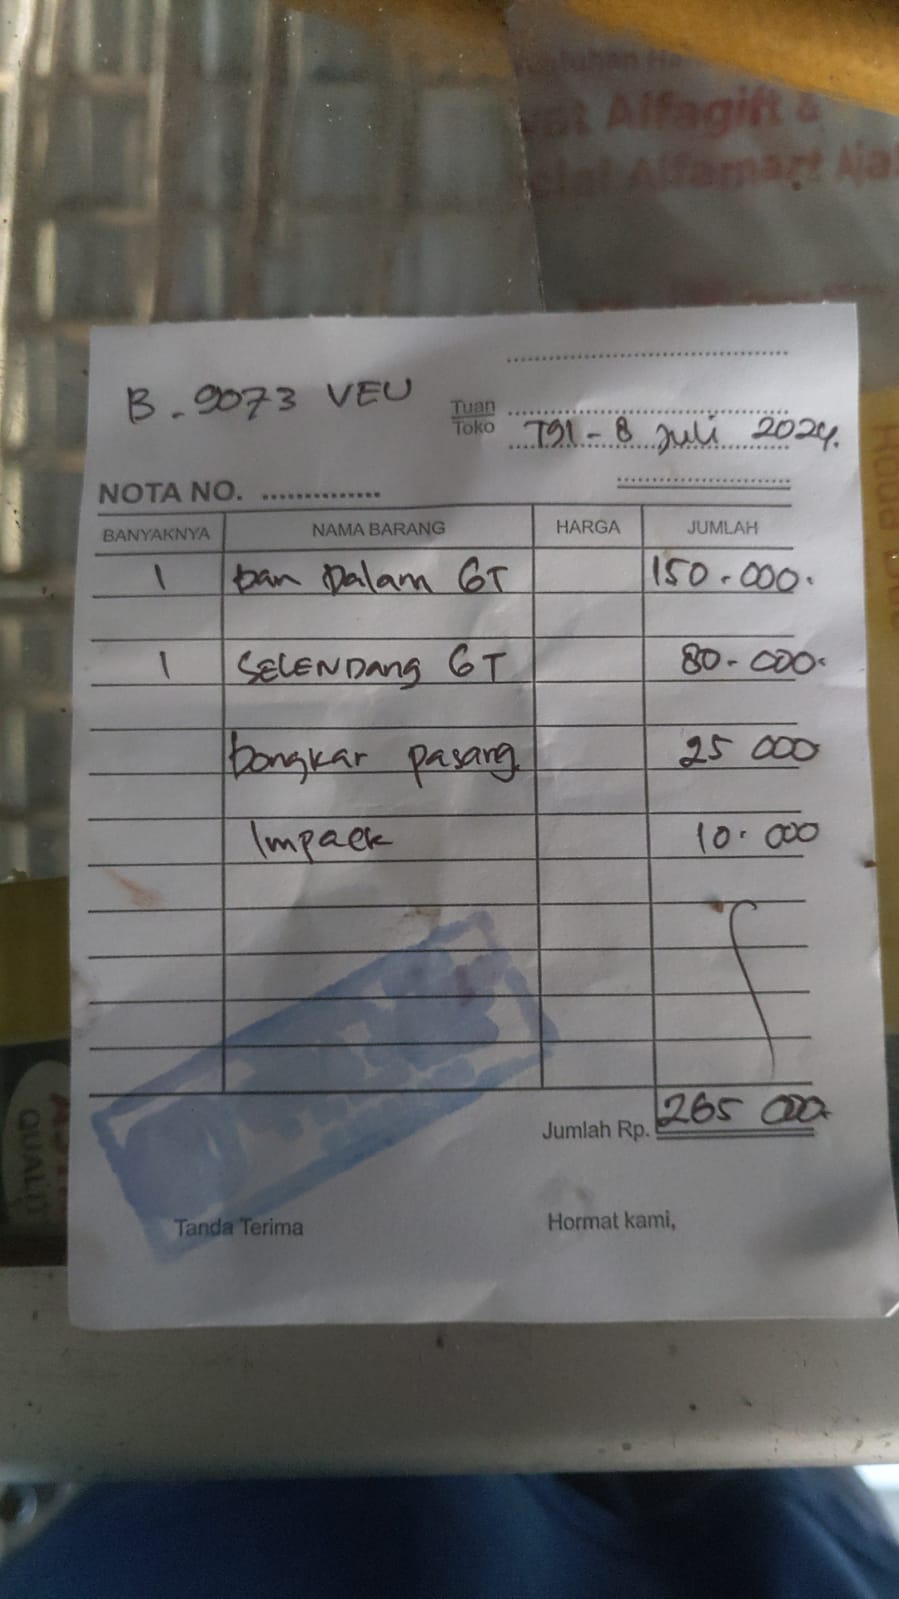 Alfagift &
Alfamart Aja
B. 9073 VEU
Tuan
Toko
T91 - 8 Juli 2024.
NOTA NO. ..............
BANYAKNYA NAMA BARANG HARGA JUMLAH
1 ban Dalam GT 150.000.
1 SELENDang GT 80.000.
bongkar pasang 25 000
Impack 10.000
Jumlah Rp. 265 000
Tanda Terima Hormat kami,
QUALIT